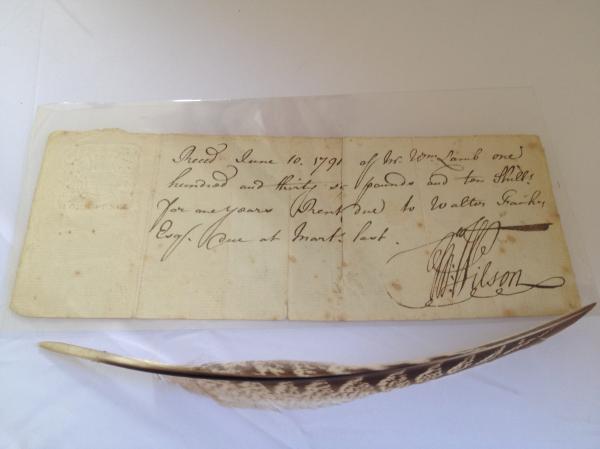 Recd. June 10. 1791 of Mr. Wm. Lamb one
hundred and thirty six pounds and ten Shills.
for one years Rent due to Walter
Esqr. due at Mart. last.
Wilson